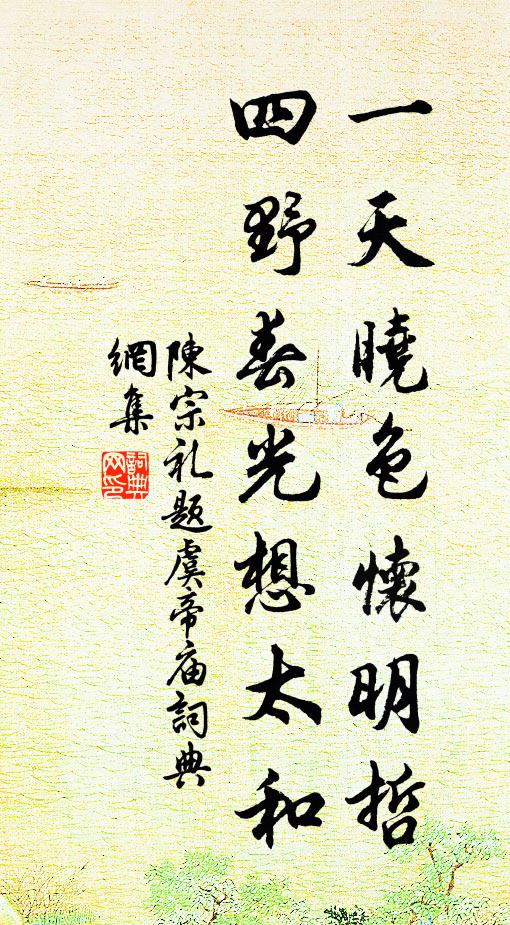 一天曉色懷明哲
四野春光想太和
陳宗礼題虞帝庙詞典
網集
詞典網印